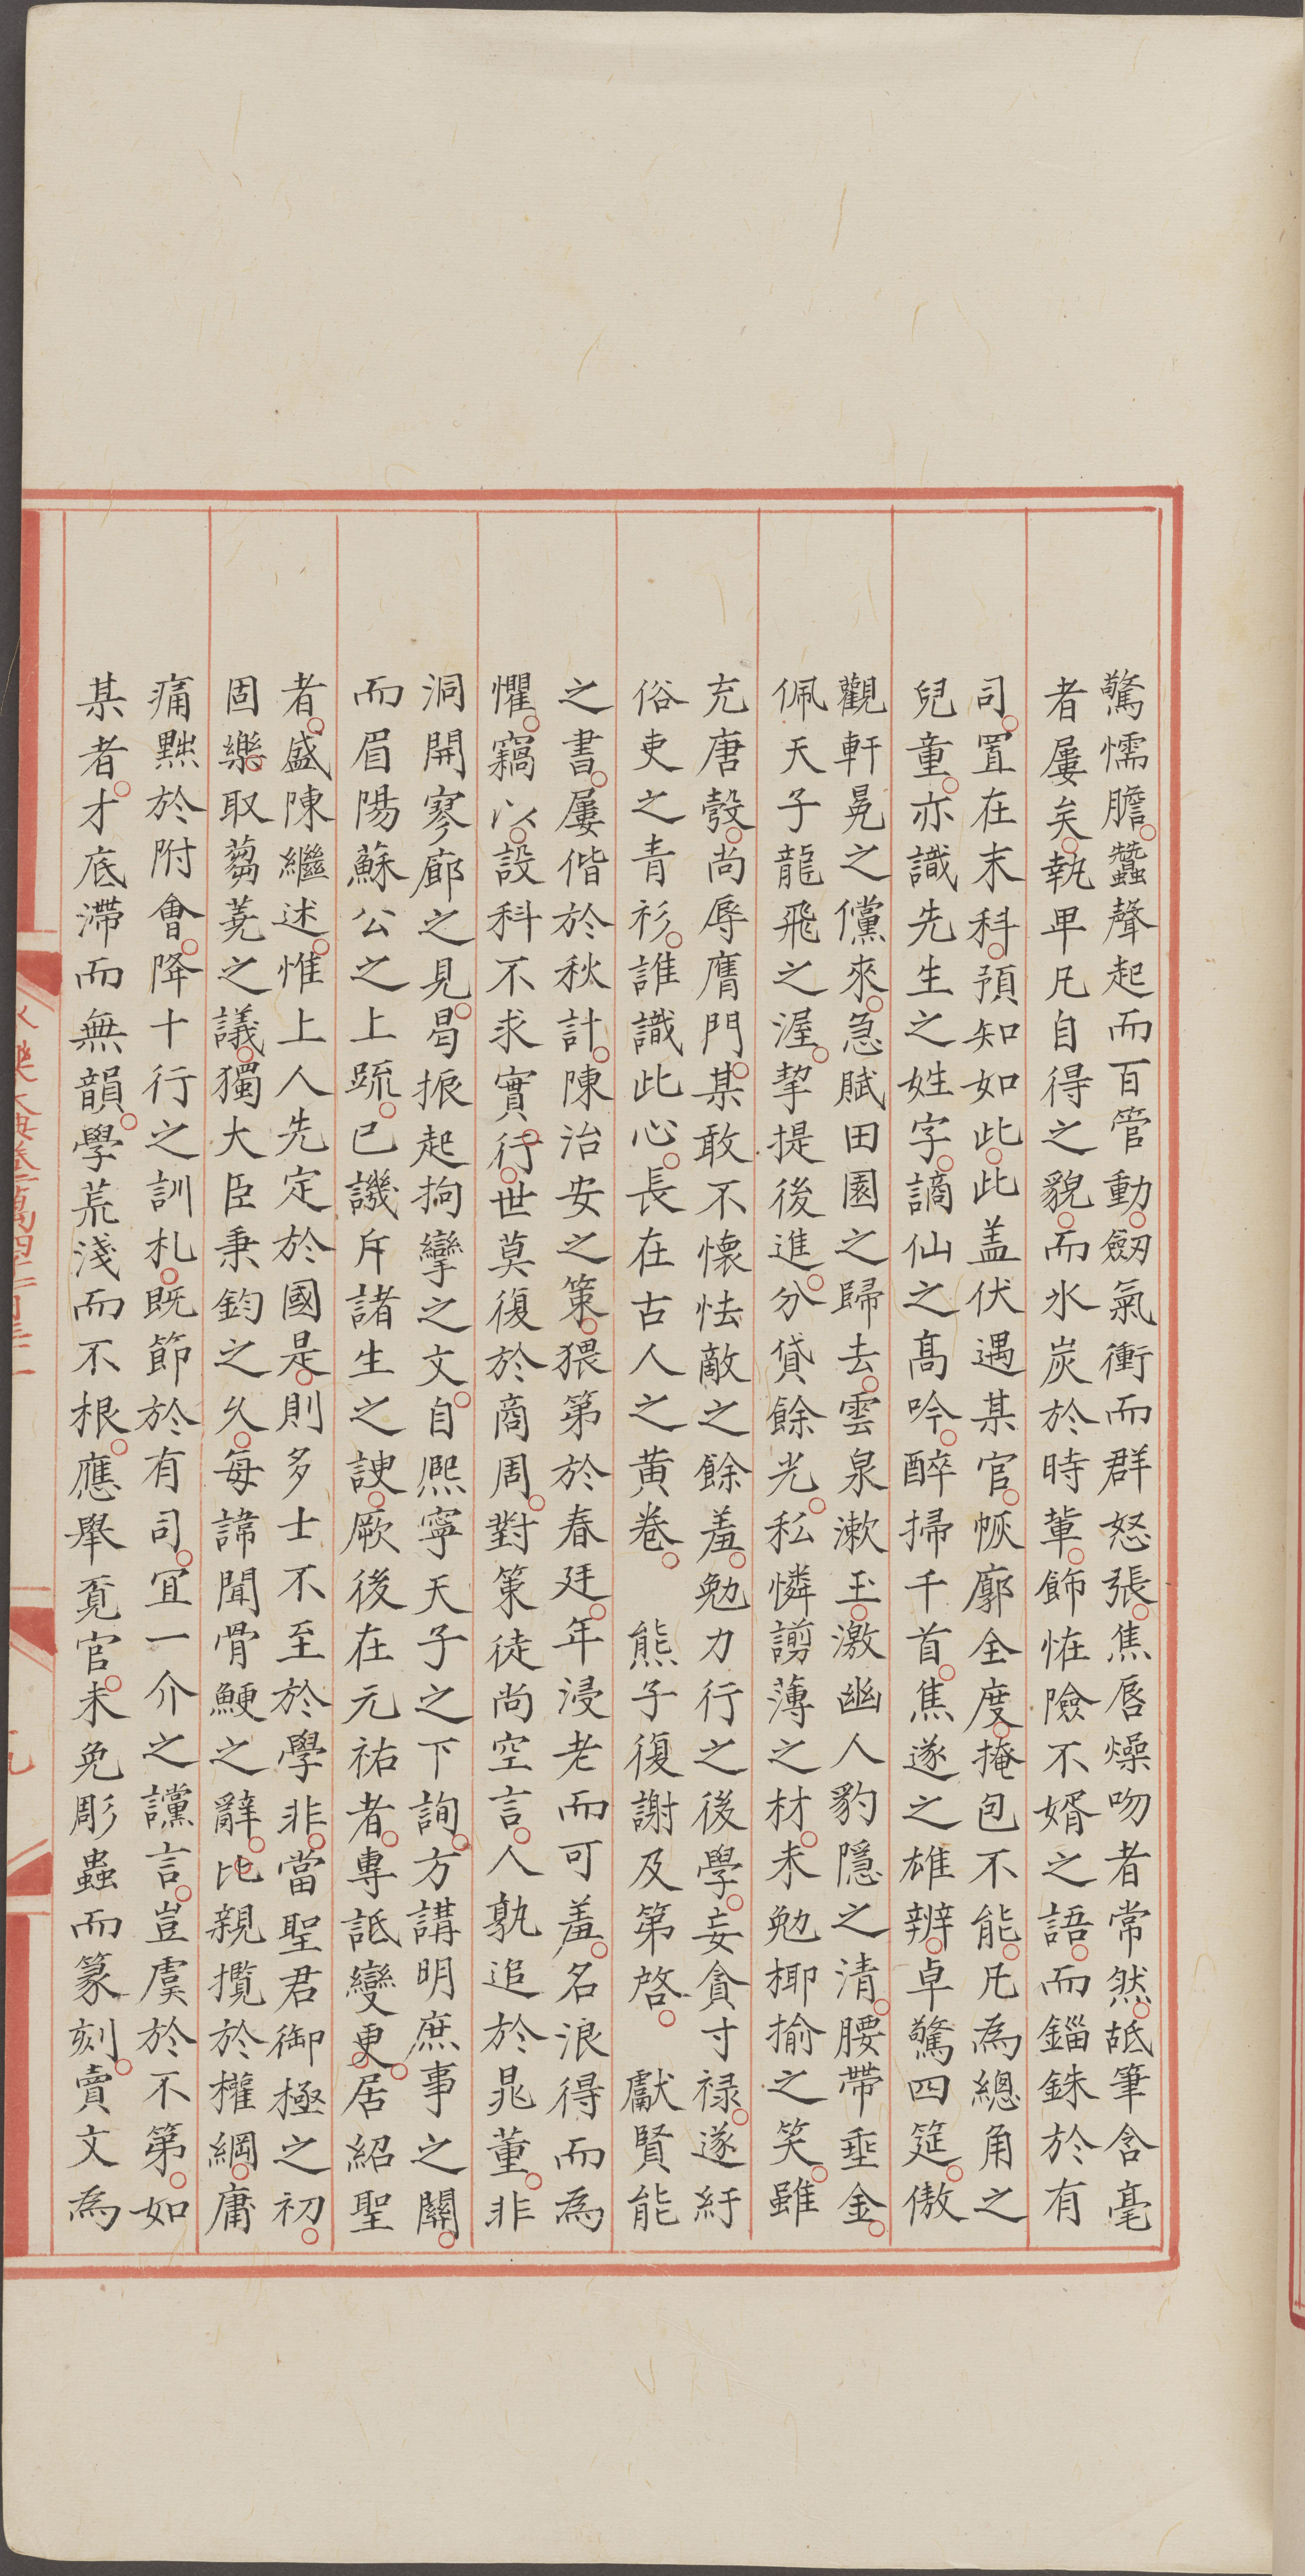 驚懦膽蠶聲起而百管動劒氣衝而群怒張焦唇燥吻者常然䑛筆含毫
者屢矣執卑凡自得之貌而氷炭於時輩飾恠險不婿之語而錙銖於有
司置在末科預知如此此盖伏遇某官恢廓全度掩包不能凡為總角之
兒童亦識先生之姓字謫仙之高吟醉掃千首焦遂之雄辨卓驚四筵傲
觀軒冕之儻來急賦田園之歸去雲泉漱玉激幽人豹隱之清腰帶垂金
佩天子龍飛之渥挈提後進分貸餘光私憐謭薄之材未勉揶揄之笑雖
充唐彀尚辱膺門某敢不懷怯敵之餘羞勉力行之後學妄貪寸祿遂紆
俗吏之青衫誰識此心長在古人之黃卷 熊子復謝及第啓 獻賢能
之書屢偕於秋計陳治安之策猥第於春廷年浸老而可羞名浪得而為
懼竊以設科不求實行世莫復於商周對策徒尚空言人孰追於晁董非
洞開寥廓之見曷振起拘攣之文自熈寧天子之下詢方講明庶事之關
而眉陽蘇公之上疏已譏斥諸生之諛厥後在元祐者專詆變更居紹聖
者盛陳繼述惟上人先定於國是則多士不至於學非當聖君御極之初
固樂取蒭蕘之議獨大臣秉鈞之久每諱聞骨鯁之辭比親攬於權綱庸
痛黜於附會降十行之訓札既節於有司冝一介之讜言豈虞於不第如
某者才底滯而無韻學荒淺而不根應舉覓官未免彫蟲而篆刻賣文為